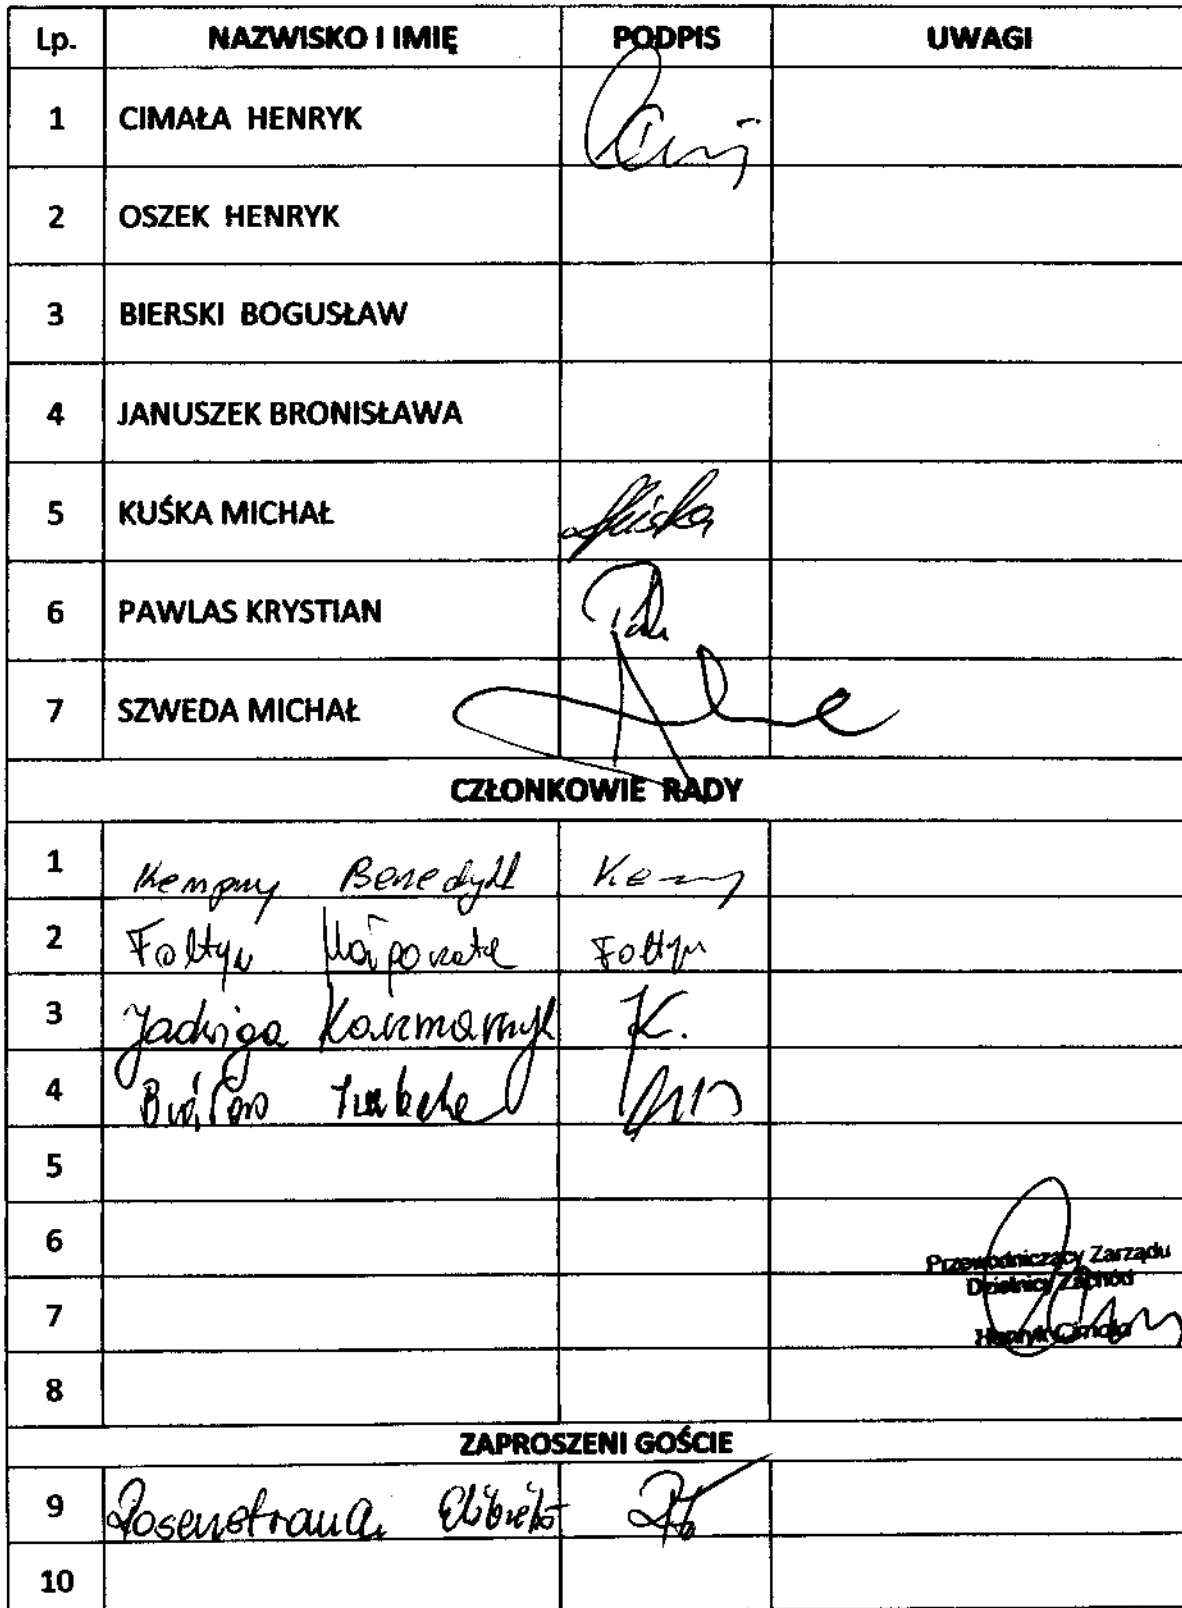 Lp. NAZWISKO I IMIĘ PODPIS UWAGI
1 CIMAŁA HENRYK
2 OSZEK HENRYK
3 BIERSKI BOGUSŁAW
4 JANUSZEK BRONISŁAWA
5 KUŚKA MICHAŁ Kuśka
6 PAWLAS KRYSTIAN
7 SZWEDA MICHAŁ
CZŁONKOWIE RADY
1 Kempny Benedykt
2 Foltyn Małgorzata Foltyn
3 Jadwiga Kaczmarczyk K.
4
5
6
Przewodniczący Zarządu
Dzielnicy Zachód
7
Henryk Cimała
8
ZAPROSZENI GOŚCIE
9 Rosenstrauch Elżbieta
10